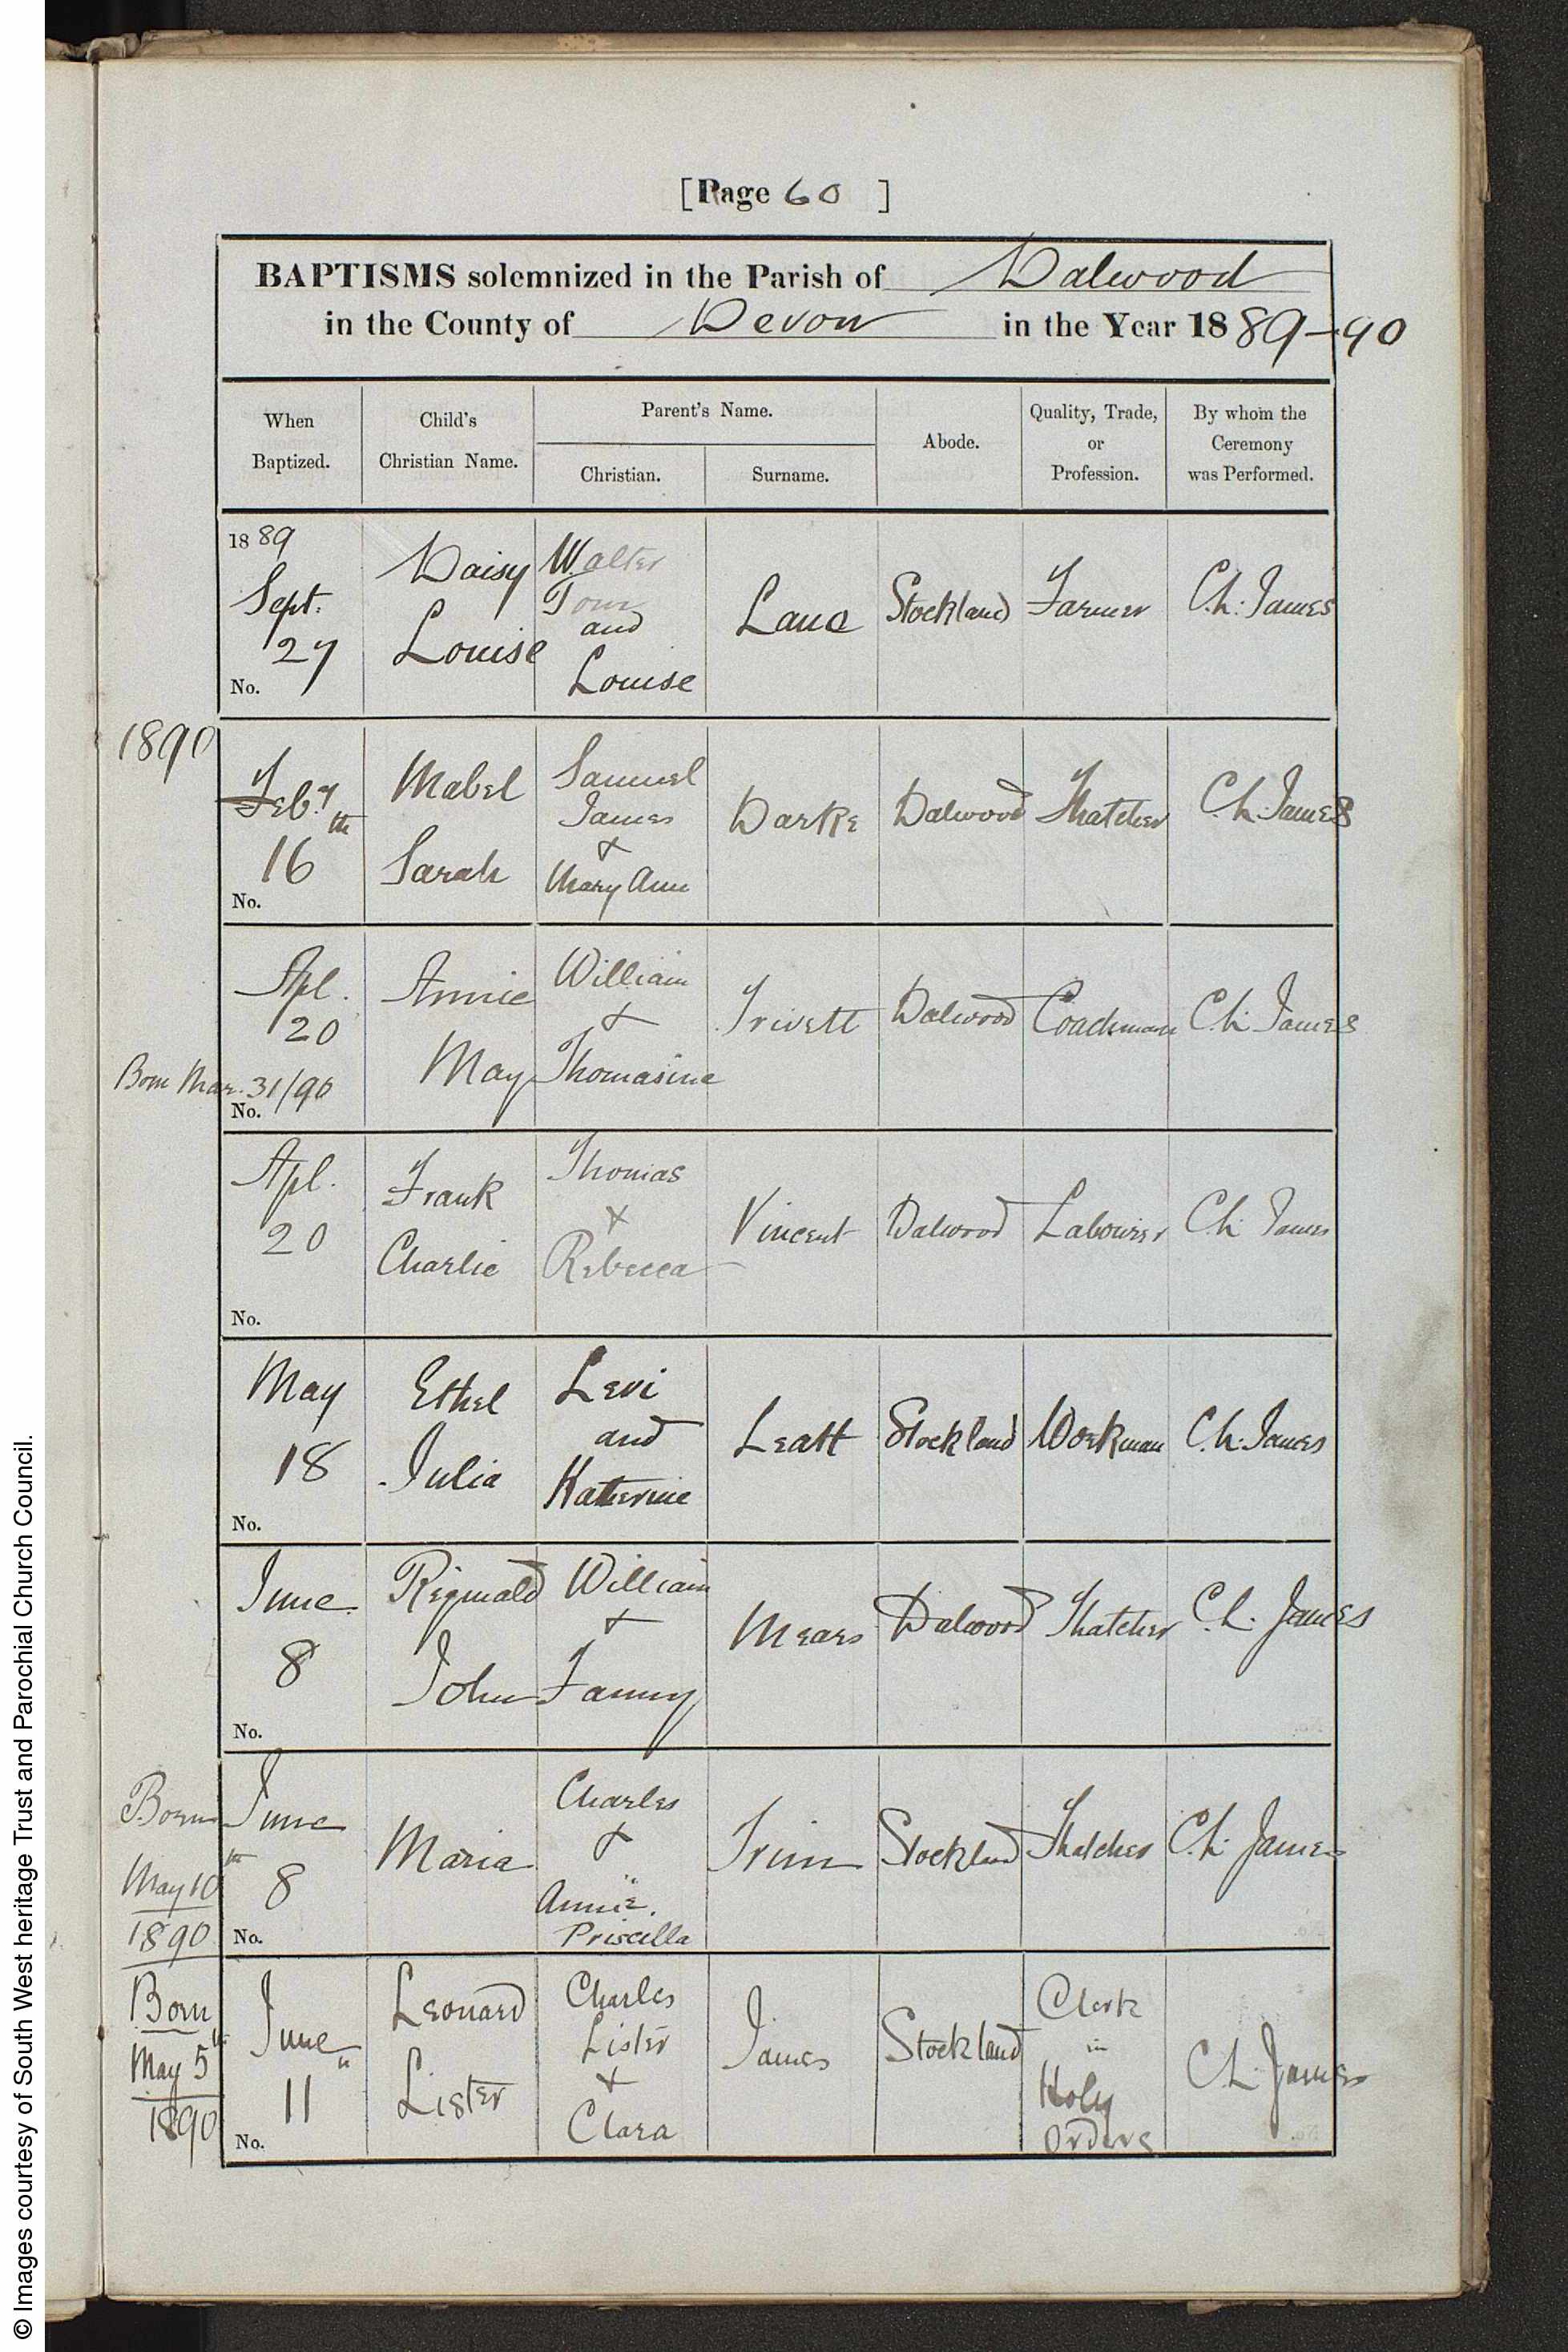 [Page 60 ]
BAPTISMS solemnized in the Parish of Dalwood
in the County of Devon in the Year 1889-90
When Baptized.
Child's Christian Name.
Parent's Name.
Christian.
Surname.
Abode.
Quality, Trade, or Profession.
By whom the Ceremony was Performed.
1889
Sept.
27
No.
Daisy
Louise
Walter
Tom
and
Louise
Lane
Stockland
Farmer
C.L. James
1890
Feby
16th
No.
Mabel
Sarah
Samuel
James
&
Mary Ann
Darke
Dalwood
Thatcher
C.L. James
Apl.
20
Born Mar. 31/90
No.
Annie
May
William
&
Thomasine
Trivett
Dalwood
Coachman
C.L. James
Apl.
20
No.
Frank
Charlie
Thomas
&
Rebecca
Vincent
Dalwood
Labourer
C.L. James
May
18
No.
Ethel
Julia
Levi
and
Katherine
Leatt
Stockland
Workman
C.L. James
June
8
No.
Reginald
John
William
&
Fanny
Mears
Dalwood
Thatcher
C.L. James
Born
May 10th
1890
June
8
No.
Maria
Charles
&
Annie
Priscilla
Trim
Stockland
Thatcher
C.L. James
Born
May 5th
1890
June
11
No.
Leonard
Lister
Charles
Lister
&
Clara
James
Stockland
Clerk
in
Holy
Orders
C.L. James
© Images courtesy of South West heritage Trust and Parochial Church Council.